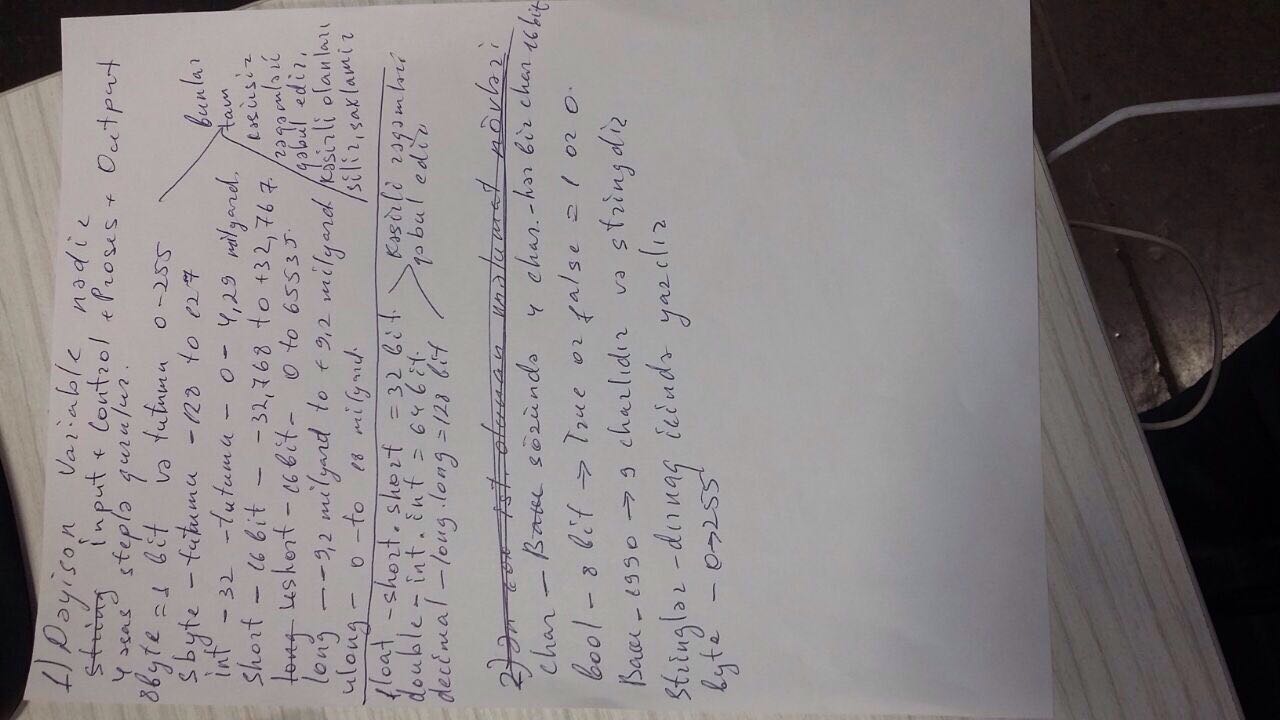 1) Dəyişən variable nədir
String input + Control + Proses + Output
4 əsas steplə qurulur.
8byte = 1 bit və tutumu 0-255
Sbyte - tutumu -128 to 127
int - 32 - tutumu - 0 - 4,29 milyard.
Short - 16 bit - -32,768 to +32,767.
long ushort - 16bit - 0 to 65535.
long - -9,2 milyard to + 9,2 milyard
ulong - 0 - to 18 milyard.
bunlar
tam
kəsirsiz
rəqəmləri
qəbul edir,
kəsirli olanları
silir, saxlamir
float - short.short = 32 bit.
double - int.int = 64 bit.
decimal - long.long = 128 bit
kəsirli rəqəmləri
qəbul edir,
2) Ən çox ist. olunan məlumat növləri
char - Bakı sözündə 4 char. - hər bir char 16 bit
bool - 8 bit => True or false = 1 or 0.
Bakı - 1990 -> 9 charlıdır və stringdir
Stringlər - dırnaq içində yazılır
byte - 0->255